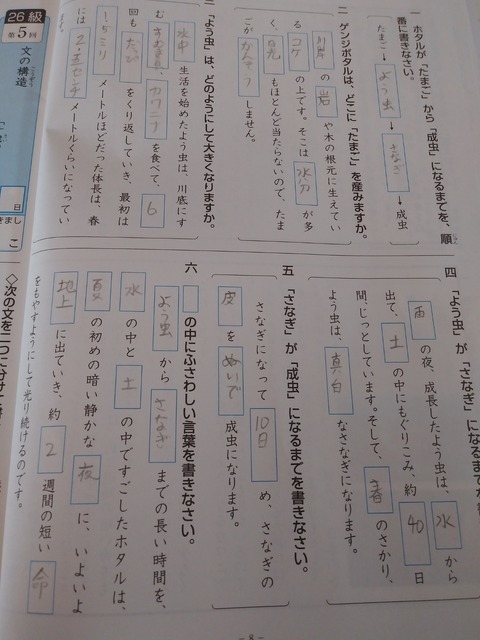 一 ホタルが「たまご」から「成虫」になるまでを、順
番に書きなさい。
たまご→よう虫→さなぎ→成虫
二 ゲンジボタルは、どこに「たまご」を産みますか。
川岸の岩や木の根元に生えてい
るコケの上です。そこは水分が多
く、日光もほとんど当たらないので、たま
ごがかんそうしません。
三 「よう虫」は、どのようにして大きくなりますか。
水中生活を始めたよう虫は、川底にす
む、カワニナを食べて、6
回もだっぴをくり返していき、最初は
1.5ミリメートルほどだった体長は、春
には2、五センチメートルくらいになってい
ます。
四 「よう虫」が「さなぎ」になるまで
雨の夜、成長したよう虫は、水から
出て、土の中にもぐりこみ、約40日
間、じっとしています。そして、春のさかり、
よう虫は、真白なさなぎになります。
五 「さなぎ」が「成虫」になるまでを書きなさい。
さなぎになって10日め、さなぎの
皮をぬいで成虫になります。
六 □の中にふさわしい言葉を書きなさい。
よう虫からさなぎまでの長い時間を、
水の中と土の中ですごしたホタルは、
夏の初めの暗い静かな夜に、いよいよ
地上に出ていき、約2週間の短い命
をもやすようにして光り続けるのです。
26級
第5回
文の構造
こうぞう
日
◇次の文を二つに分けて
- 8 -